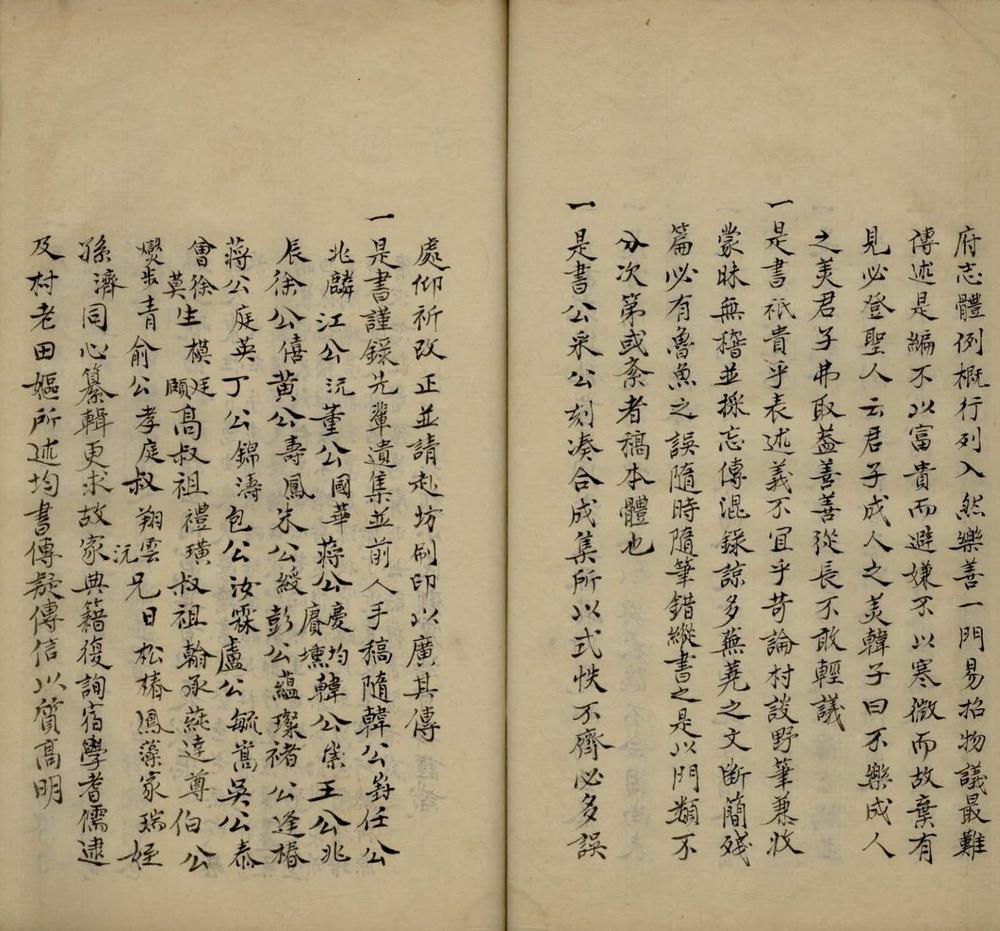 府志體例概行列入然樂善一門易招物議最難
傳述是編不以富貴而避嫌不以寒微而故棄有
見必登聖人云君子成人之美韓子曰不樂成人
之美君子弗取葢善善從長不敢輕議
一是書祇貴乎表述義不宜乎苛論村談野筆兼收
蒙昧無稽並採忘傳混錄諒多蕪蕘之文斷簡殘
篇必有魯魚之誤隨時隨筆錯縱書之是以門類不
分次第或紊者稿本體也
一是書公采公刻湊合成集所以式帙不齊必多誤
處仰祈改正並請赴坊刷印以廣其傳
一是書謹錄先輩遺集並前人手稿隨韓公對任公
兆麟江公沅董公國華蔣公慶均賡壎韓公崇王公兆
辰徐公僖黃公壽鳳朱公綬彭公蘊璨褚公逢椿
蔣公庭英丁公錦濤包公汝霖盧公毓嵩吳公泰
曾徐莫生模廷願高叔祖禮璜叔祖翰承燕達尊伯公
燮步青俞公孝庭叔翔雲沅兄日松椿鳳藻家瑞姪
孫濟同心纂輯更求故家典籍復詢宿學耆儒逮
及村老田嫗所述均書傳疑傳信以質高明